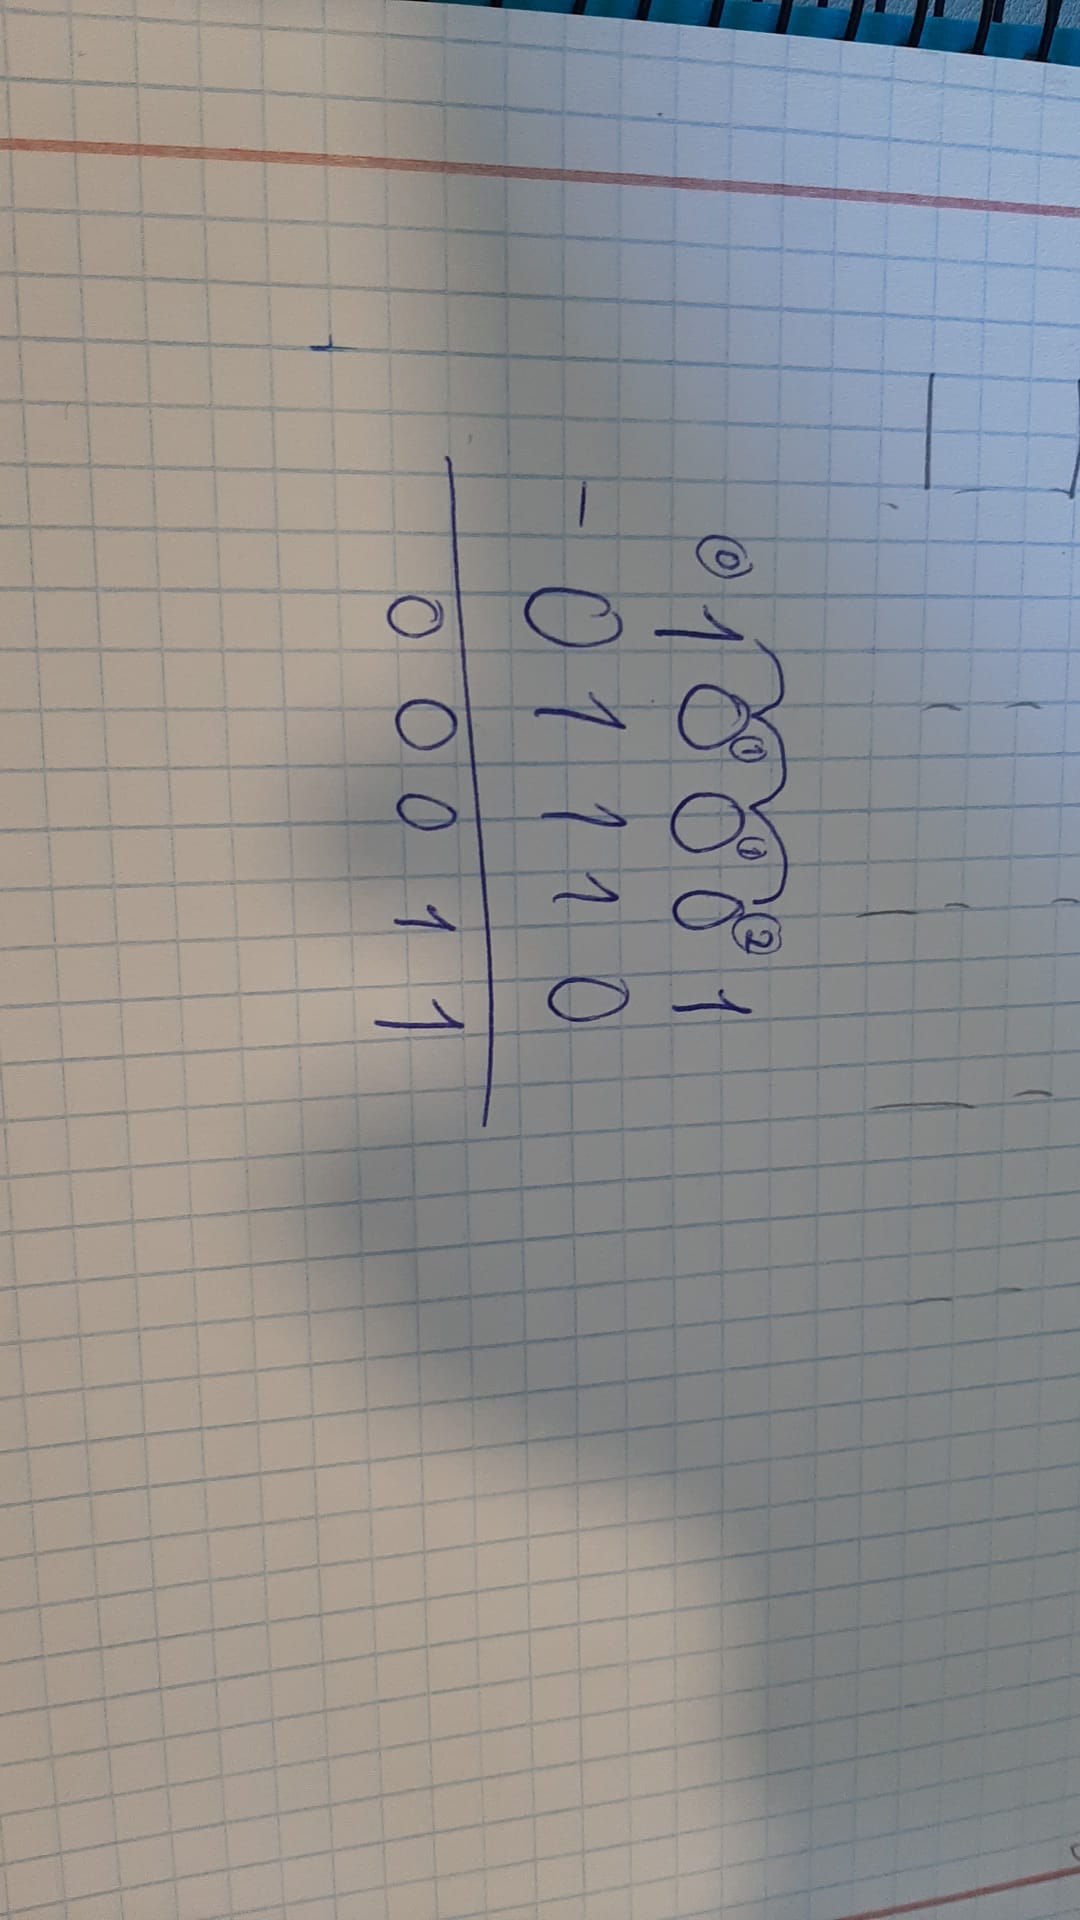 ⓪ 1 0① 0① 0② 1
- 0 1 1 1 0
0 0 0 1 1